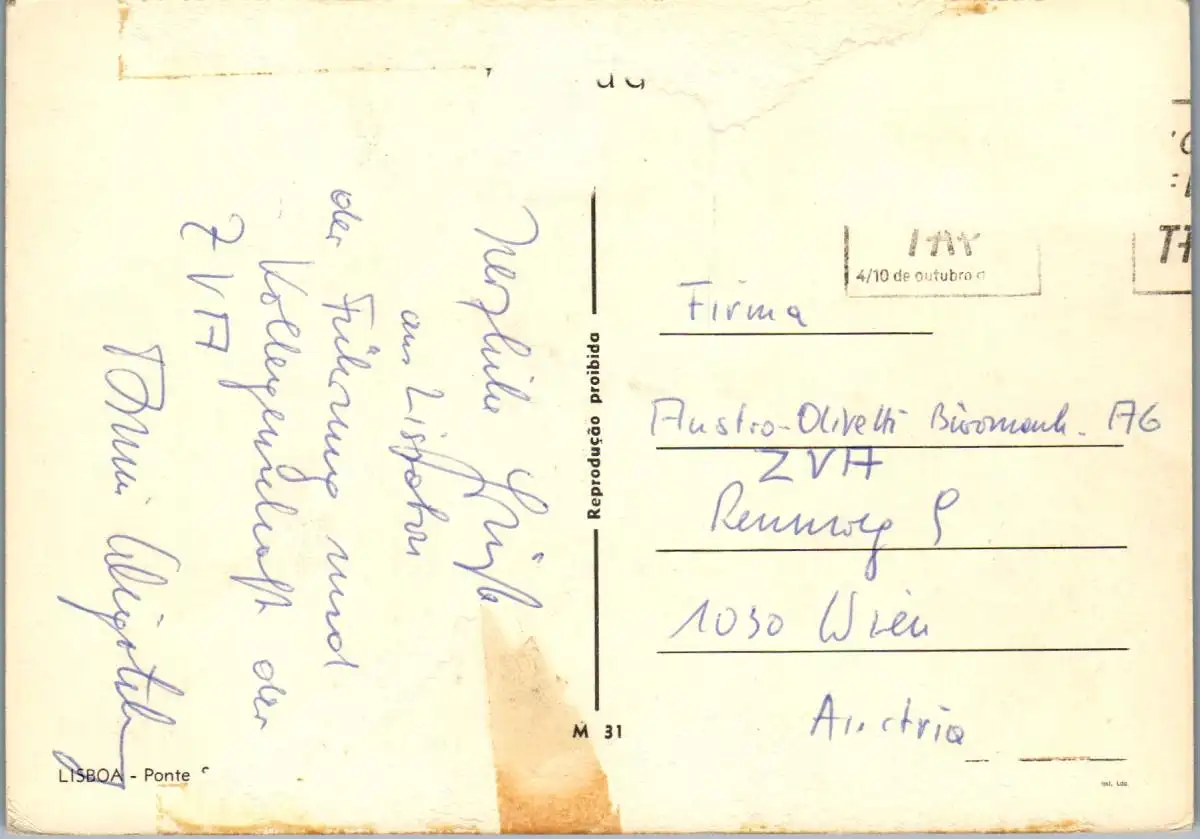 Herzliche Grüße
aus Lissabon
der Führung und
Kollegenschaft der
ZVA
Reprodução proibida
M 31
LISBOA - Ponte
4/10 de outubro d
Firma
Austro-Olivetti Büromasch. AG
ZVA
Rennweg 9
1030 Wien
Austria